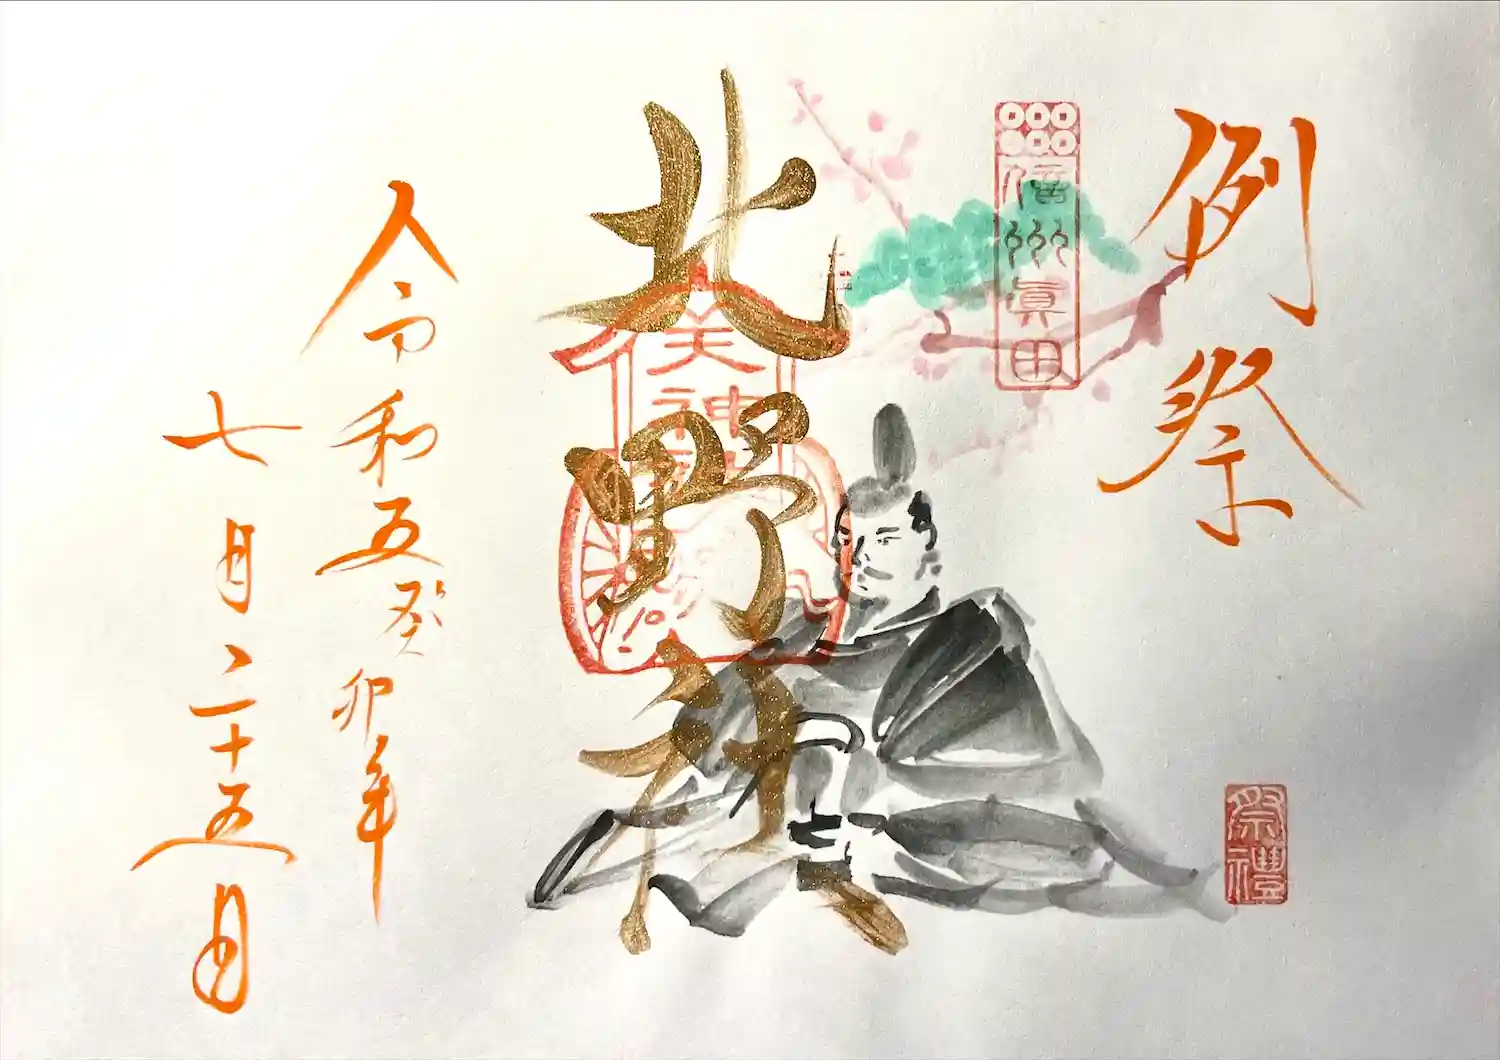 例祭
信州眞田
祭禮
北野社
天神
令和五癸卯年
七月二十五日